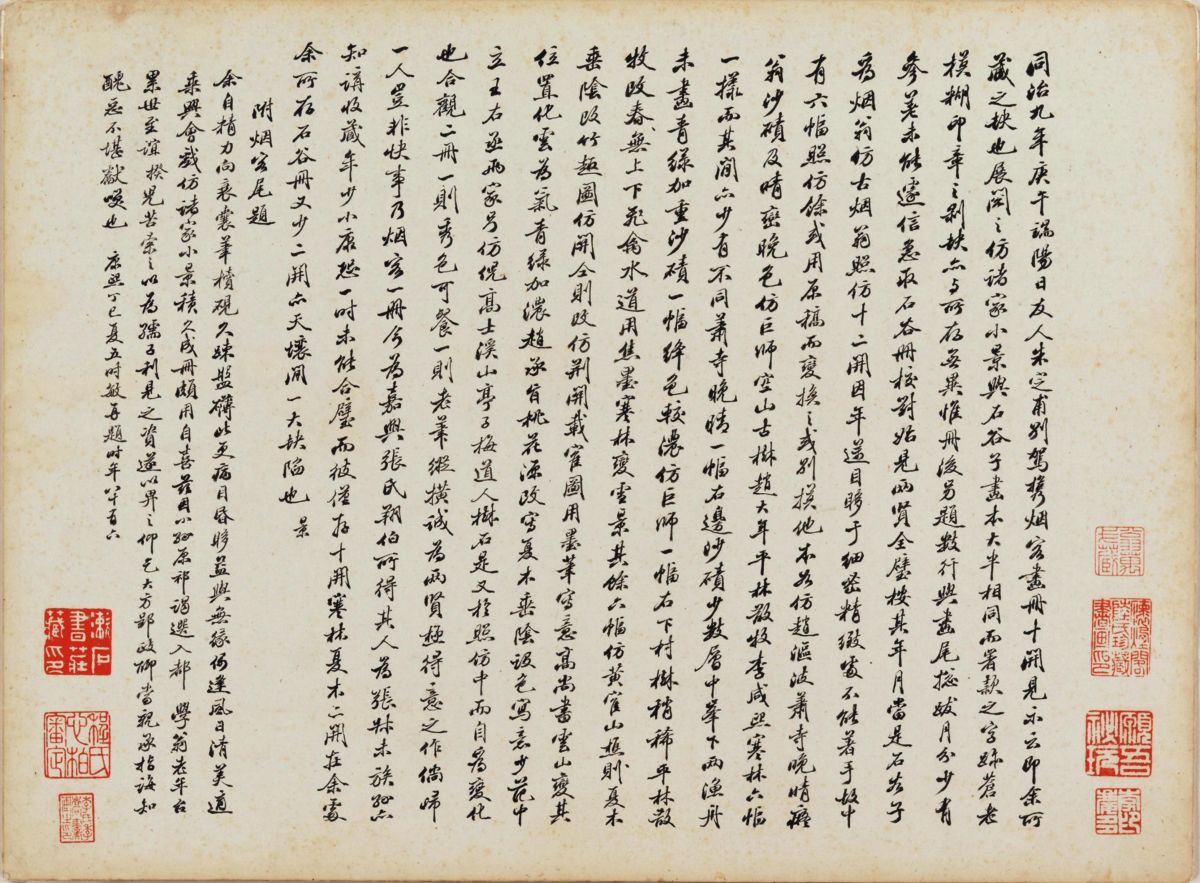 同治九年庚午端陽日友人朱定甫別駕攜烟客畫冊十開見示云即余所
藏之缺也展閱之仿諸家小景與石谷子畫本大半相同而署款之字跡蒼老
模糊印章之剥缺亦与所存無異惟冊後另題數行與畫尾揔跋月分少有
參差未能遽信急取石谷冊校對始見兩賢全璧按其年月當是石谷子
為烟翁仿古烟翁照仿十二開因年邁目眵于細密精緻處不能著手故中
有六幅照仿餘或用原稿而變換之或別摸他本如仿趙漚波蕭寺晚晴癡
翁沙磧及晴巒晚色仿巨師空山古樹趙大年平林散牧李咸熙寒林六幅
一樣而其間亦少有不同蕭寺晚晴一幅右邊沙磧少數層中峯下兩漁舟
未畫青綠加重沙磧一幅絳色較濃仿巨師一幅右下村樹稍稀平林散
牧改春無上下飛禽水道用焦墨寒林變雪景其餘六幅仿黃崔山樵則夏木
垂陰改竹趣圖仿關仝則改仿荆關載崔圖用墨筆寫意高尚書雲山變其
位置化雲為氣青綠加濃趙承旨桃花源改寫夏木垂陰設色寫意少范中
立王右丞兩家另仿倪高士溪山亭子梅道人樹石是又於照仿中而自為變化
也合觀二冊一則秀色可餐一則老筆縱横誠為兩賢極得意之作倘歸
一人豈非快事乃烟客一冊今為嘉興張氏翔伯所得其人為張叔未族孫亦
知講收藏年少小康恐一时未能合璧而彼僅存十開寒林夏木二開在余處
余所存石谷冊又少二開亦天壤間一大缺陷也 景
附烟客尾題
余自精力向衰囊筆櫝硯久疎盤礴比更病目昏眵益與無緣偶逢風日清美適
乘興會戲仿諸家小景積久成冊頗用自喜茲因小孫原祁謁選入都 學翁老年台
累世至誼揆兒苦索之以為孺子利見之資遂以畀之仰乞大方郢政御當親承指誨知
醜惡不堪獻嘆也 康熙丁巳夏五时敏再題时年八十有六
漱石
書莊
藏印
楊氏
心柏
審定